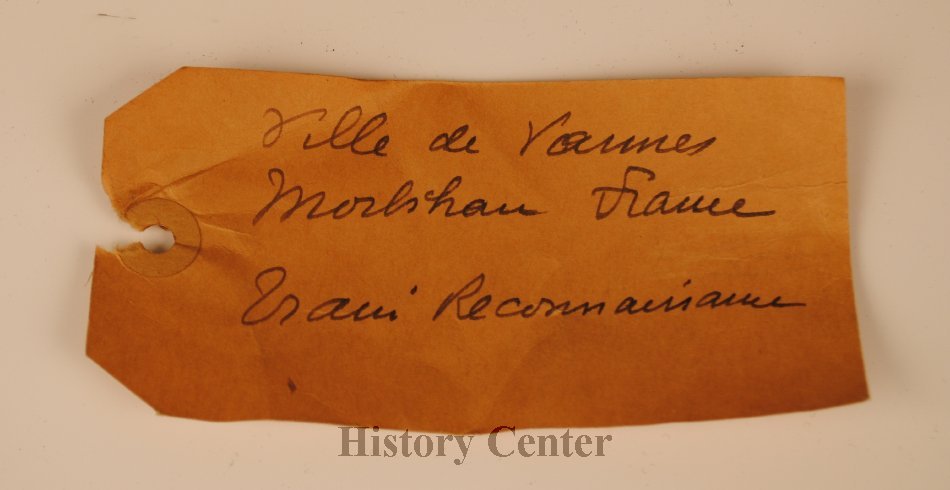 Ville de Vannes
Morbihan France
Train Reconnaissance
History Center